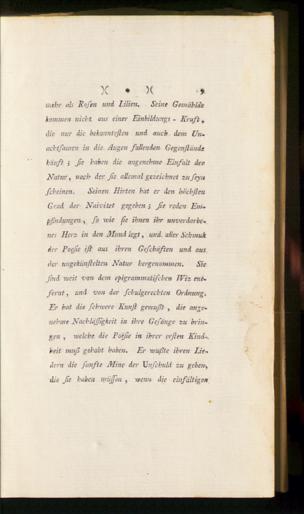 )( • )( 9
mehr als Rosen und Lilien. Seine Gemählde
kommen nicht aus einer Einbildungs-Kraft,
die nur die bekanntesten und auch dem Un-
achtsamen in die Augen fallenden Gegenstände
häuft; sie haben die angenehme Einfalt der
Natur, nach der sie allemal gezeichnet zu seyn
scheinen. Seinen Hirten hat er den höchsten
Grad der Naivitet gegeben; sie reden Em-
pfindungen, so wie sie ihnen ihr unverdorbe-
nes Herz in den Mund legt, und aller Schmuk
der Poesie ist aus ihren Geschäften und aus
der ungekünstelten Natur hergenommen. Sie
sind weit von dem epigrammatischen Wiz ent-
fernt, und von der schulgerechten Ordnung.
Er hat die schwere Kunst gewußt, die ange-
nehme Nachlässigkeit in ihre Gesänge zu brin-
gen, welche die Poesie in ihrer ersten Kind-
heit muß gehabt haben. Er wußte ihren Lie-
dern die sanfte Mine der Unschuld zu geben,
die sie haben müssen, wenn die einfältigen